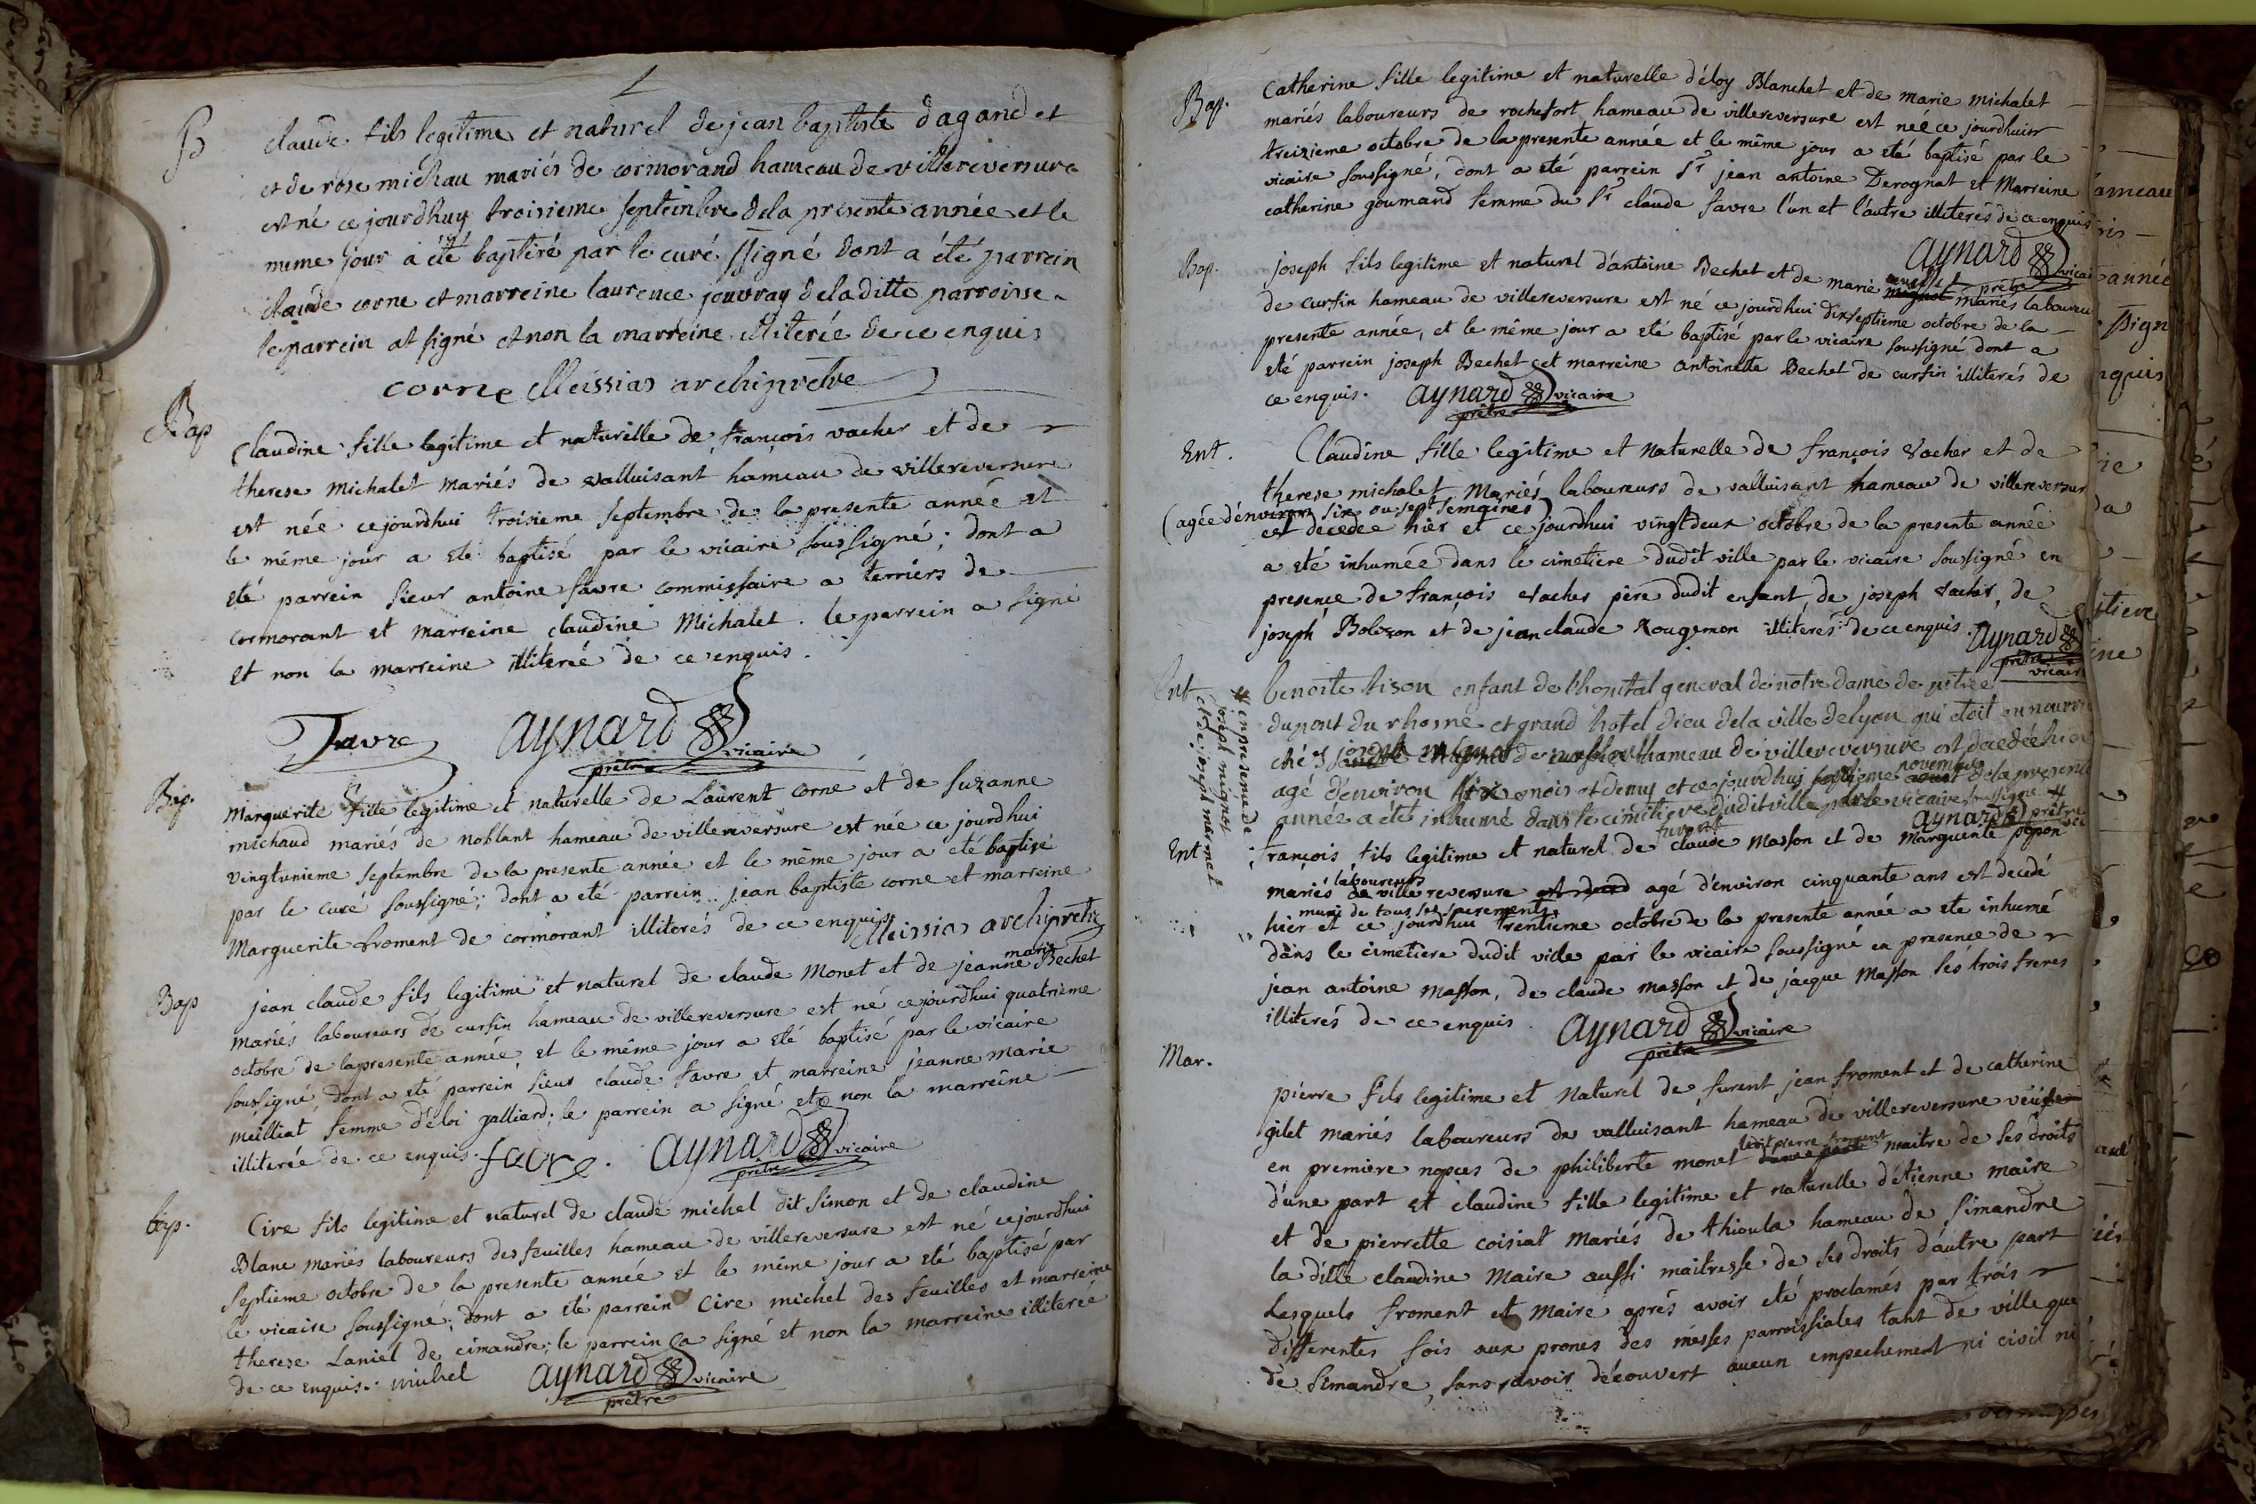 B
claude fils legitime et naturel de jean baptiste dagand et
et de rose michau mariés de cormorand hameau de villereversure
est né ce jourdhuy troisieme septembre dela presente année et le
meme jour a été baptisé par le curé ssigné dont a été parrein
claude corne et marreine laurence jouvray deladitte parroisse
le parrein at signé et non la marreine illiterée de ce enquis
corne Meissias archiprétre
Bap
Claudine fille legitime et naturelle de françois vacher et de
therese michalet mariés de valluisant hameau de villereversure
est née cejourdhui troisieme séptembre de la presente année et
le même jour a eté baptisé par le vicaire soussigné; dont a
eté parrein sieur antoine favre commissaire a terriers de
cormorant et marreine claudine Michalet. le parrein a signé
et non la marreine illiterée de ce enquis.
Favre aynard vicaire
prêtre
Bap.
Marguerite fille legitime et naturelle de Laurent corne et de suzanne
michaud mariés de noblant hameau de villereversure est née ce jourdhui
vingtunieme septembre de la presente année et le même jour a eté baptisé
par le curé soussigné; dont a eté parrein jean baptiste corne et marreine
Marguerite froment de cormorant illiterés de ce enquis
Meissias archiprétre
Bap
marie
jean claude fils legitime et naturel de claude Monet et de jeanne Bechet
mariés laboureurs de cursin hameau de villereversure est né cejourdhui quatrieme
octobre de lapresente année et le même jour a eté baptisé par le vicaire
soussigné, dont a eté parrein sieur claude favre et marreine jeanne marie
meilliat femme d'éloi galliard; le parrein a signé et non la marreine
illiterée de ce enquis. favre. aynard vicaire
prêtre
bap.
Cire fils legitime et naturel de claude michel dit simon et de claudine
Blanc mariés laboureurs des feuilles hameau de villereversure est né cejourdhui
septieme octobre de la presente année et le même jour a eté baptisé par
le vicaire soussigné; dont a eté parrein Cire michel des feuilles et marreine
therese Laniel de cimandre; le parrein a signé et non la marreine illiterée
de ce enquis. michel aynard vicaire
prêtre
Bap.
Catherine fille legitime et naturelle d'éloy Blanchet et de marie michalet
mariés laboureurs de rochefort hameau de villereversure est née ce jourdhuir
treizieme octobre de la presente année et le même jour a eté baptisé par le
vicaire soussigné, dont a eté parrein Sr jean antoine Derognat et Marreine
catherine goumand femme du Sr claude favre l'un et l'autre illiterés de ce enquis
aynard vicai
prêtre
Bap.
joseph fils legitime et naturel d'antoine Bechet et de marie mignot mariés laboureu
de cursin hameau de villereversure est né ce jourdhui dixseptieme octobre de la
presente année, et le même jour a eté baptisé par le vicaire soussigné dont a
eté parrein joseph Bechet et marreine antoinette Bechet de cursin illiterés de
ce enquis. aynard vicaire
prêtre
Ent.
Claudine fille legitime et naturelle de françois Vacher et de
therese michalet Mariés laboureurs de valluisant hameau de villereversur
(agée d'environ six ou sept semaines
est decedée hier et ce jourdhui vingtdeux octobre de la presente année
a eté inhumée dans le cimetiere dudit ville par le vicaire soussigné en
presence de françois Vacher père dudit enfant, de joseph Vacher, de
joseph Bolozon et de jean claude Rougemon illiterés de ce enquis. aynard
prêtre
vicair
Ent
benoite tison enfant de l'hopital general de notre dame de pitiée
dupont du rhosne et grand hotel dieu dela ville delyon qui etoit en nourri
ché joseph mignot de noblant hameau de villereversure est decedée hier
novembre
agé d'environ six mois et demy et ce jourdhuy septieme aoust dela presente
année a été inhumé dans le cimitiere duditville par le vicaire soussigné #
aynard prêtre vic
# en presence de
joseph mignot
et de joseph marmet
Ent
furent
françois fils legitime et naturel de claude Masson et de Marguerite pepon
laboureurs
mariés de villereversure agé d'environ cinquante ans est decedé
muni de tous ses sacrements
hier et ce jourdhui trentieme octobre de la presente année a eté inhumé
dans le cimetiere dudit ville par le vicaire soussigné en presence de
jean antoine masson, de claude masson et de jacque Masson ses trois freres
illiterés de ce enquis. aynard vicaire
prêtre
Mar.
pierre fils legitime et Naturel de furent jean froment et de catherine
gilet mariés laboureurs de valluisant hameau de villereversure veuf
ledit pierre froment
en première nopces de philiberte monet d'une part maitre de ses droits
d'une part et claudine fille legitime et naturelle d'étienne maire
et de pierrette coisiat mariés de thioula hameau de Simandre
la ditte claudine Maire aussi maitresse de ses droits d'autre part
Lesquels froment et Maire aprés avoir eté proclamés par trois
differentes fois aux prones des mésses parroissiales tant de ville que
de Simandre, sans avoir découvert aucun empechement ni civil ni